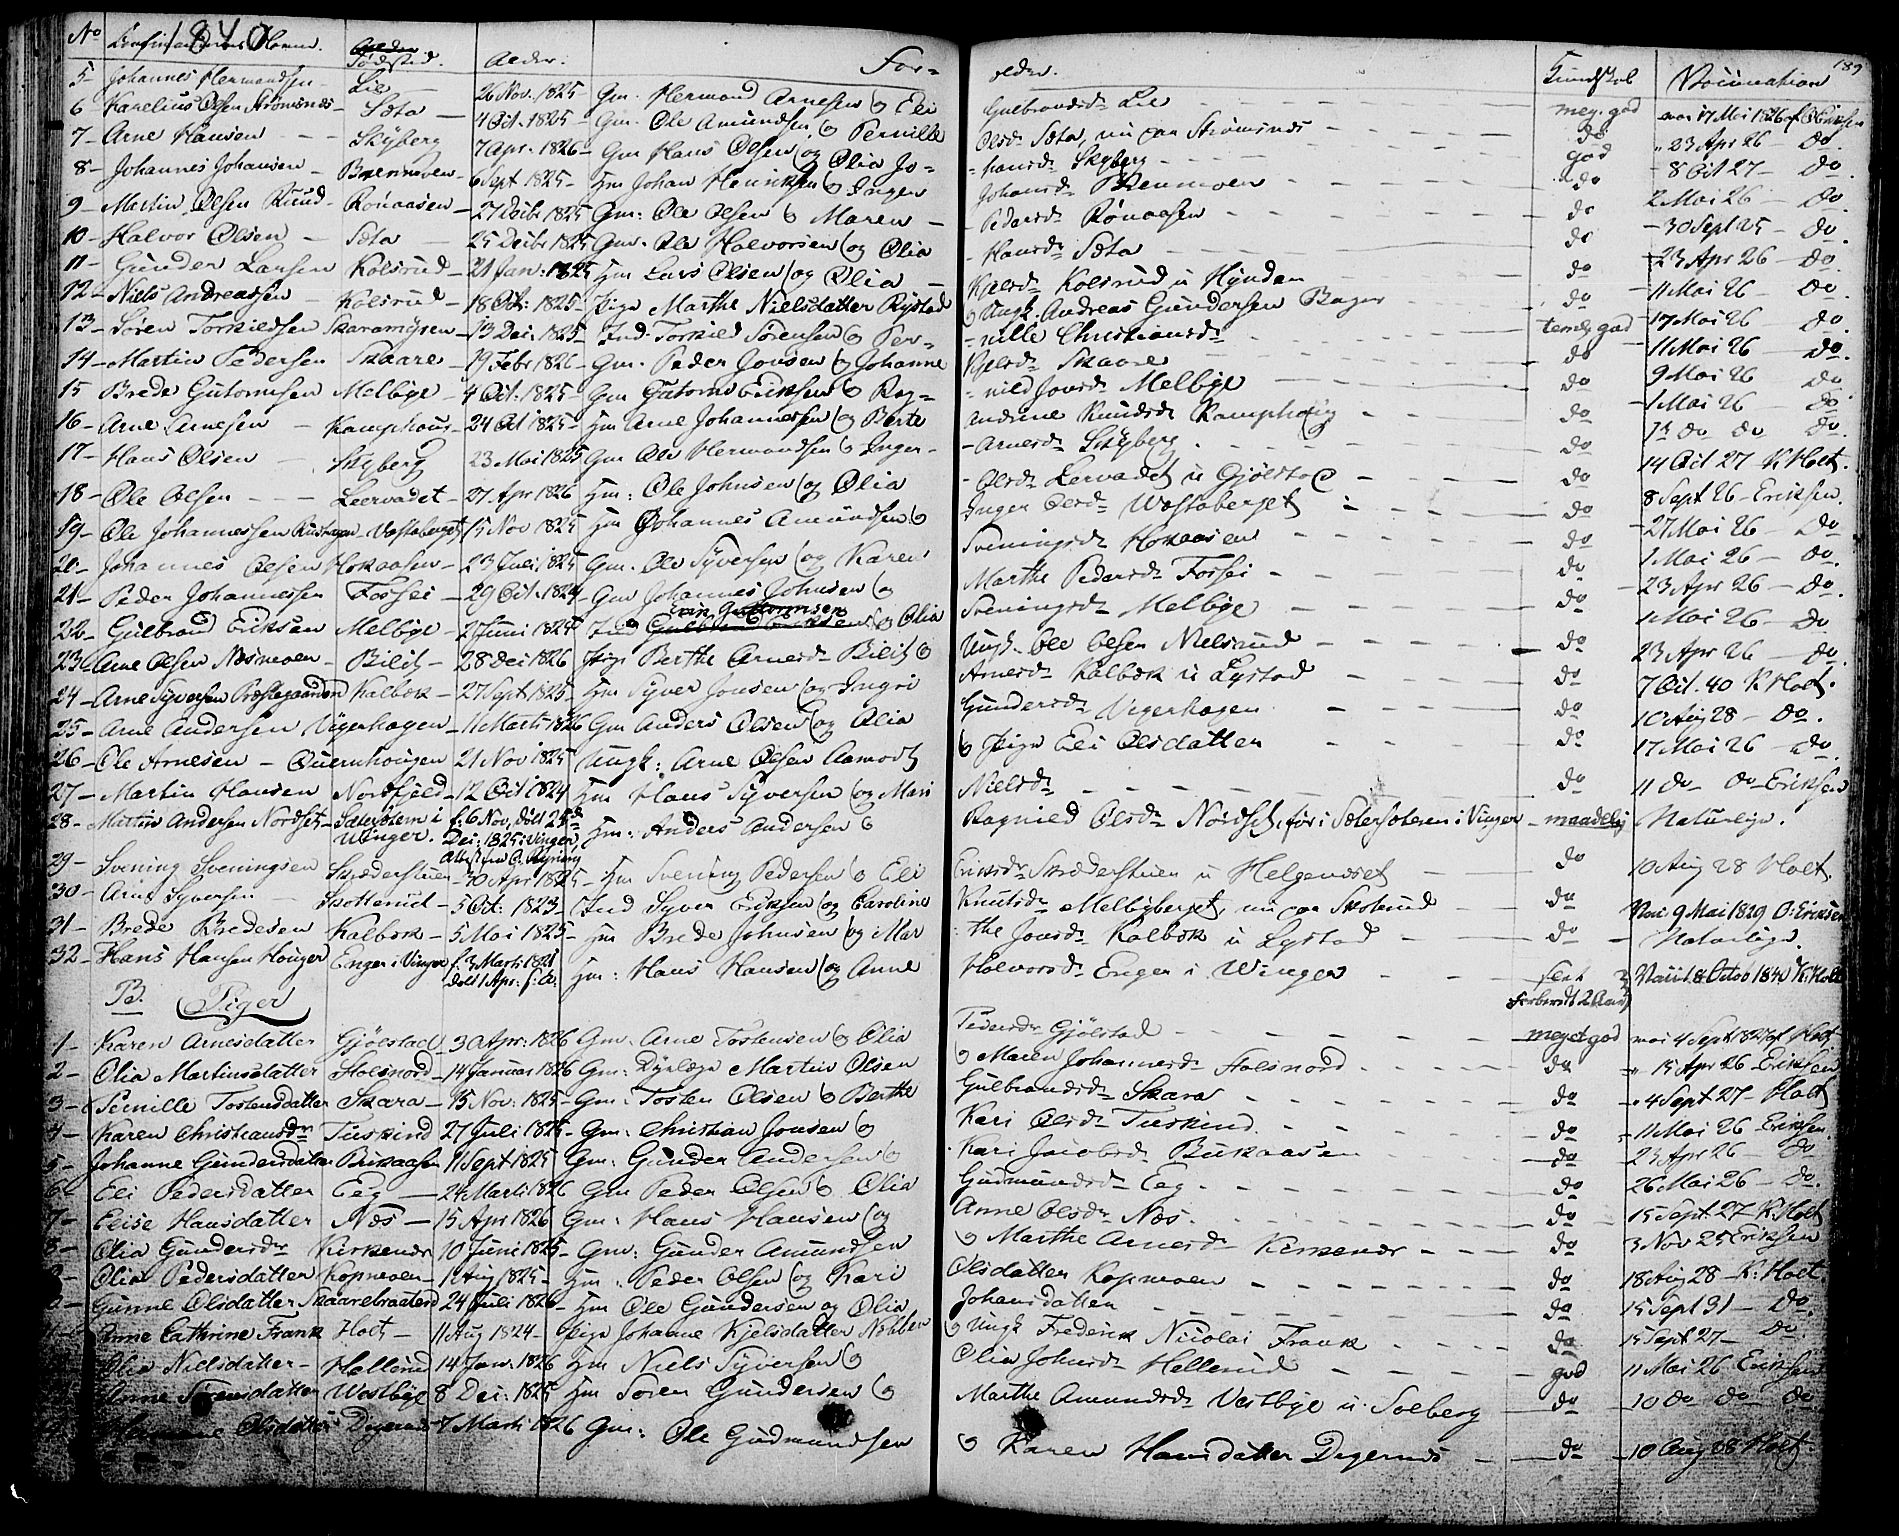 No Confirmandernes Navne. 1840 Fødested. Alder. For-
5- Johannes Hermandsen - Lie - 26 Nov. 1825 - Gm. Hermand Arnesen og Eli
6 Karelius Olsen Strømsnes - Sæta - 4 Oct. 1825 - Gm. Ole Amundsen og Pernille
7- Arne Hansen - - Skyberg 7 Apr. 1826 - Gm Hans Olsen og Olia Jo-
8- Johannes Johansen - Brenmoen - 6 Sept 1825 - Hm Johan Henriksen og Inger
9- Martin Olsen Ruud - Rønaasen - 27 Decbr 1825 Gm: Ole Olsen og Maren -
10- Halvor Olsen - Sæta - 25 Decbr 1825 Gm. Ole Halvorsen og Olia
11- Gunder Larsen Kolsrud - 21 Jan: 1825 Hm Lars Olsen og Olia -
12- Niels Andreassen - Kolsrud - 18 Oct: 1825 - Pige Marthe Nielsdatter Rystad
13- Søren Torkildsen Skaramyren - 13 Dec. 1825 - Ind. Torkild Sørensen og Per-
14- Martin Pedersen Skaare - 19 Febr 1826 - Gm. Peder Jonsen og Johanne
15 Brede Gutormsen Melbye - 4 Oct. 1825 - Gm Gutorm Eriksen og Rag-
16- Arne Arnesen - Kamphoug - 24 Oct 1825 - Hm Arne Johannessen og Berte
17- Hans Olsen - Skyberg 23 Mai 1825 Gm Ole Hermandsen og Inger -
18- Ole Olsen - - Leervadet - 27 Apr 1826 Hm: Ole Johnsen og Olia
19- Ole Johannessen - Vestaberget 15 Nov 1825 Hm Johannes Amundsen og
20- Johannes Olsen Hokaasen - 23 Juli 1825 Gm. Ole Syversen og Karen
21- Peder Johannessen Fossei - 29 Oct. 1824 - Gm Johannes Johnsen og
22- Gulbrand Eriksen Melbye - 2 Juni 1825 Ind Erik Guttormsen og Olia
23- Arne Olsen Næsmoen - Bilit - 28 Dec 1826 Pige Berthe Arnesd. Bilit og
24- Arne Syversen Præstegaarden Kalbæk - 27 Sept 1825 - Hm Syver Jonsen og Ingri
25- Arne Andersen Vigerhagen - 11 Marts 1826 Gm Anders Olsen og Olia
26- Ole Arnesen - Quernhougen 21 Nov 1825 Ungk: Arne Olsen Aamodt
27- Martin Hansen Nordfjeld - 12 Oct 1824 Hm Hans Syversen og Mari
28- Martin Andersen Nordset - Sætersøtern i Winger. f. 6 Nov, døbt 25de Dec: 1825 i Vinger, Hm: Anders Andersen og
29- Svening Sveningsen Skrædderstuen - 30 Apr 1825 - Hm Svening Pedersen og Eli
30- Arne Syversen - Skotterud - 5 Oct: 1823 - Ind Syver Eriksen og Caroline
31- Brede Bredesen Kalbæk - 5 Mai 1825 - Hm Brede Johnsen og Mar
32- Hans Hansen Houger Enger i Vinger f. 3 Marts 1821 døbt 1 Apr: s: A. Hm: Hans Hansen og Anne
B. Piger
1- Karen Arnesdatter Gjølstad - 3 Apr: 1826 Gm. Arne Tostensen og Olia
2- Olia Martinsdatter Holsnord - 14 Januar 1826 Gm: Dyrlæge Martin Olsen
3- Pernille Tostensdatter Skara - 15 Nov: 1825 - Gm. Tosten Olsen og Berthe
4- Karen Christiansdr Tuskind 27 Juli 1825 - Gm. Christian Jonsen og
5- Johanne Gundersdatter Bukaasen 11 Sept 1825 Gm: Gunder Andersen og
6- Eli Pedersdatter Eeg - 24 Marts 1826 Gm Peder Olsen og Olia
7- Elise Hansdatter Næs - 15 Apr 1826 Gm: Hans Hansen og
8- Olia Gundersdr Kirkenær 10 Juni 1825 - Gm: Gunder Amundsen
Olia Pedersdatter Kopmoen - 1 Aug 1825 - Hm: Peder Olsen og Kari
Gunne Olsdatter Skaarebraaten 24 Juli 1826 - Hm Ole Gundersen og Olia
Anne Cathrine Frank Holt - 11 Aug 1824 - Pige Johanne Kjelsdatter Nebben
Olia Nielsdatter - Hallerud 14 Jan. 1826 Hm Niels Syversen og
Anne Sørensdatter Westbye 8 Dec: 1825 Hm Søren Gundersen og
Olsdatter Digernes 7 Marts 1826 Gm: Ole Gudmundsen
ældre. Kundskab Vaccination 189
Gulbrandsdr Lie - - - meg. god vac 17 Mai 1826 af O Eriksen
Olsdr Sæta, nu paa Strømsnes - - - do " 23 Apr 26 - do.
-hansdr Skyberg - - - god - 8 Oct 27 - do.
Johansd. Brenmoen - - - do 2 Mai 26 - do.
Pedersdr Rønaasen - - - do - 30 Sept 25 - do.
- Hansdr Sæta - - - do 23 Apr 26 - do.
Kjelsdr Kolsrud u Hynden do 11 Mai 26 - do.
og Ungk. Andreas Gundersen Bager - - do 17 Mai 26 do.
-nille Christiansdr - - - temlg god 11 Mai 26 - do.
Kjelsdr Skaare - - - do 9 Mai 26 do.
-nild Jonsdr Melbye - - - do 1 Mai 26 do.
Andrine Knudsdr Kamphoug - - do 12 do do do
-Arnesdr Skyberg. - - - do 14 Oct 27 K Holt.
- Olsdr Lervadet u Gjølstad - - - do 8 Sept 26 - Eriksen.
Inger Olsdr Vestaberget - - - do - 27 Mai 26 - do
Sveningsdr Hokaasen - - - do 1 Mai 26 - do.
Marthe Pedersdr Fossei - - - do - 23 Apr 26 - do.
Sveningsdr Melbye - - - do 1 Mai 26 - do
Ungk. Ole Olsen Nielsrud - - - do 23 Apr 26 - do.
Arnesdr Kalbæk u Lystad - - - do 7 Oct. 40 K Holt.
Gundersdr Vigerhagen - - - do 10 Aug 28 - do.
og Pige Eli Olsdatter - - - do 17 Mai 26 - do.
Nielsdr - - - do 11 do do Eriksen
Ragnild Olsdr Nordset, før i Sætersøteren i Vinger - maadelig Naturlige.
Eriksdr Skrædderstuen u Helgenæset - do 10 Aug 28 Holt.
Knutsdr Melbyberget, nu paa Skotrud - do Vac: 9 Mai 1829 O: Eriksen
-the Jonsdr Kalbæk u Lystad - do - Naturlige.
Halvorsdr Enger i Winger - - Vacc: 8 Octob 1840 K: Holt
Forberedt 2 Aar
Pedersdr Gjølstad - - - meget god vac 4 Sept 1827 af Holt
og Maren Johannesdr Holsnord - - - do " 15 Apr 26 - Eriksen
Gulbrandsdr Skara - - - do - 4 Sept 27 - Holt
Kari Olsdr Tuskind. - - - do - 11 Mai 26 Eriksen.
Kari Jacobsd. Bukaasen - - - do - 23 Apr 26 - do
Gudmundsdr Eeg - - - do 26 Mai 26 - do.
Anne Olsdr Næs. - - - do 15 Sept. 27 K. Holt
og Marthe Arnesdr Kirkenær - - - do 3 Nov 25 Eriksen
Olsdatter Kopmoen - - - do 18 Aug 28 - K: Holt.
Johansdatter - - - do 15 Sept 31 - do.
og Ungk Frederik Nicolai Frank - - do 15 Sept. 27 - do.
Olia Johnsdr Hellerud - - - god 11 Mai 26 Eriksen
Marthe Amundsdr Vestbye u. Solberg - do - 10 do do do
og Karen Hansdatter Digernes - - do - 10 Aug 28 Holt